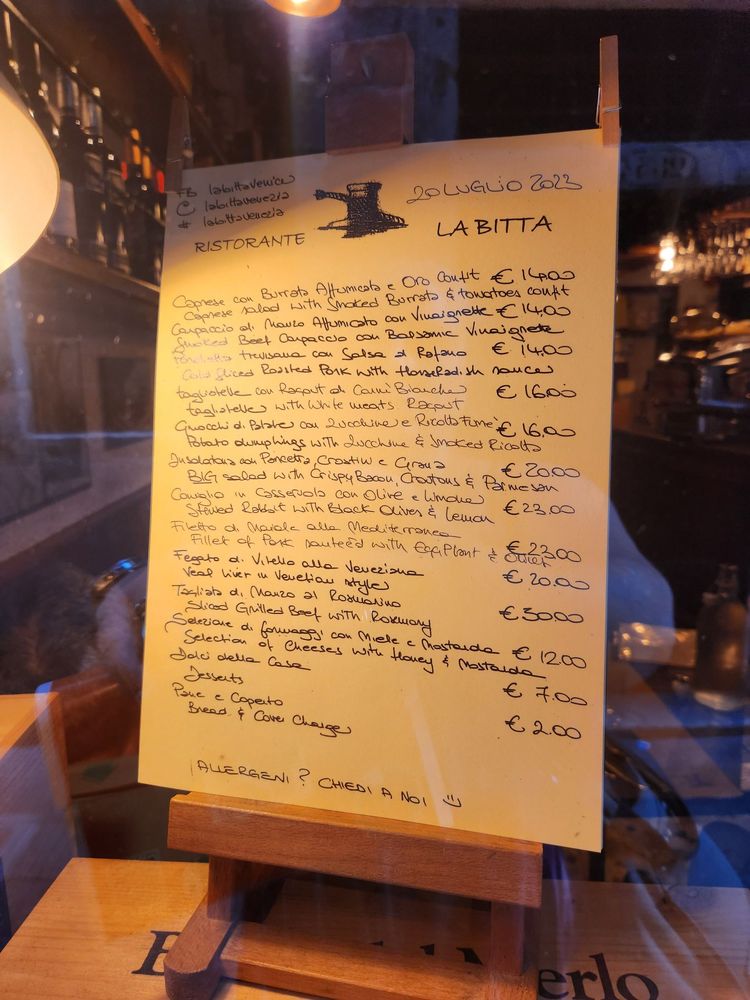 FB labittavenice
labittavenezia
# labittavenezia
20 LUGLIO 2023
RISTORANTE
LA BITTA
Caprese con Burrata Affumicata e Oro Confit € 14,00
Caprese salad with Smoked Burrata & tomatoes confit
Carpaccio di Manzo Affumicato con Vinaignette € 14,00
Smoked Beef Carpaccio con Balsamic Vinaignette
Porchetta trevisana con Salsa di Rafano € 14,00
Cold Sliced Roasted Pork with Horseradish sauce
tagliatelle con Ragout di Carni Bianche € 16,00
tagliatelle with White meats Ragout
Gnocchi di Patate con Zucchine e Ricotta Fumè € 16,00
Potato dumplings with Zucchine & Smoked Ricotta
Insalatona con Pancetta, Crostini e Grana € 20.00
BIG salad with Crispy Bacon, Croutons & Parmesan
Coniglio in Casseruola con Olive e Limone € 23.00
Stewed Rabbit with Black Olives & Lemon
Filetto di Maiale alla Mediterranea € 23,00
Fillet of Pork sauteed with EggPlant & Olives
Fegato di Vitello alla Veneziana € 20.00
Veal liver in Venetian style
Tagliata di Manzo al Rosmarino € 30.00
Sliced Grilled Beef with Rosmary
Selezione di formaggi con Miele e Mostarda € 12.00
Selection of Cheeses with Honey & Mostarda
Dolci della Casa € 7.00
Desserts
Pane e Coperto € 2.00
Bread & Cover Charge
ALLERGENI? CHIEDI A NOI
erlo